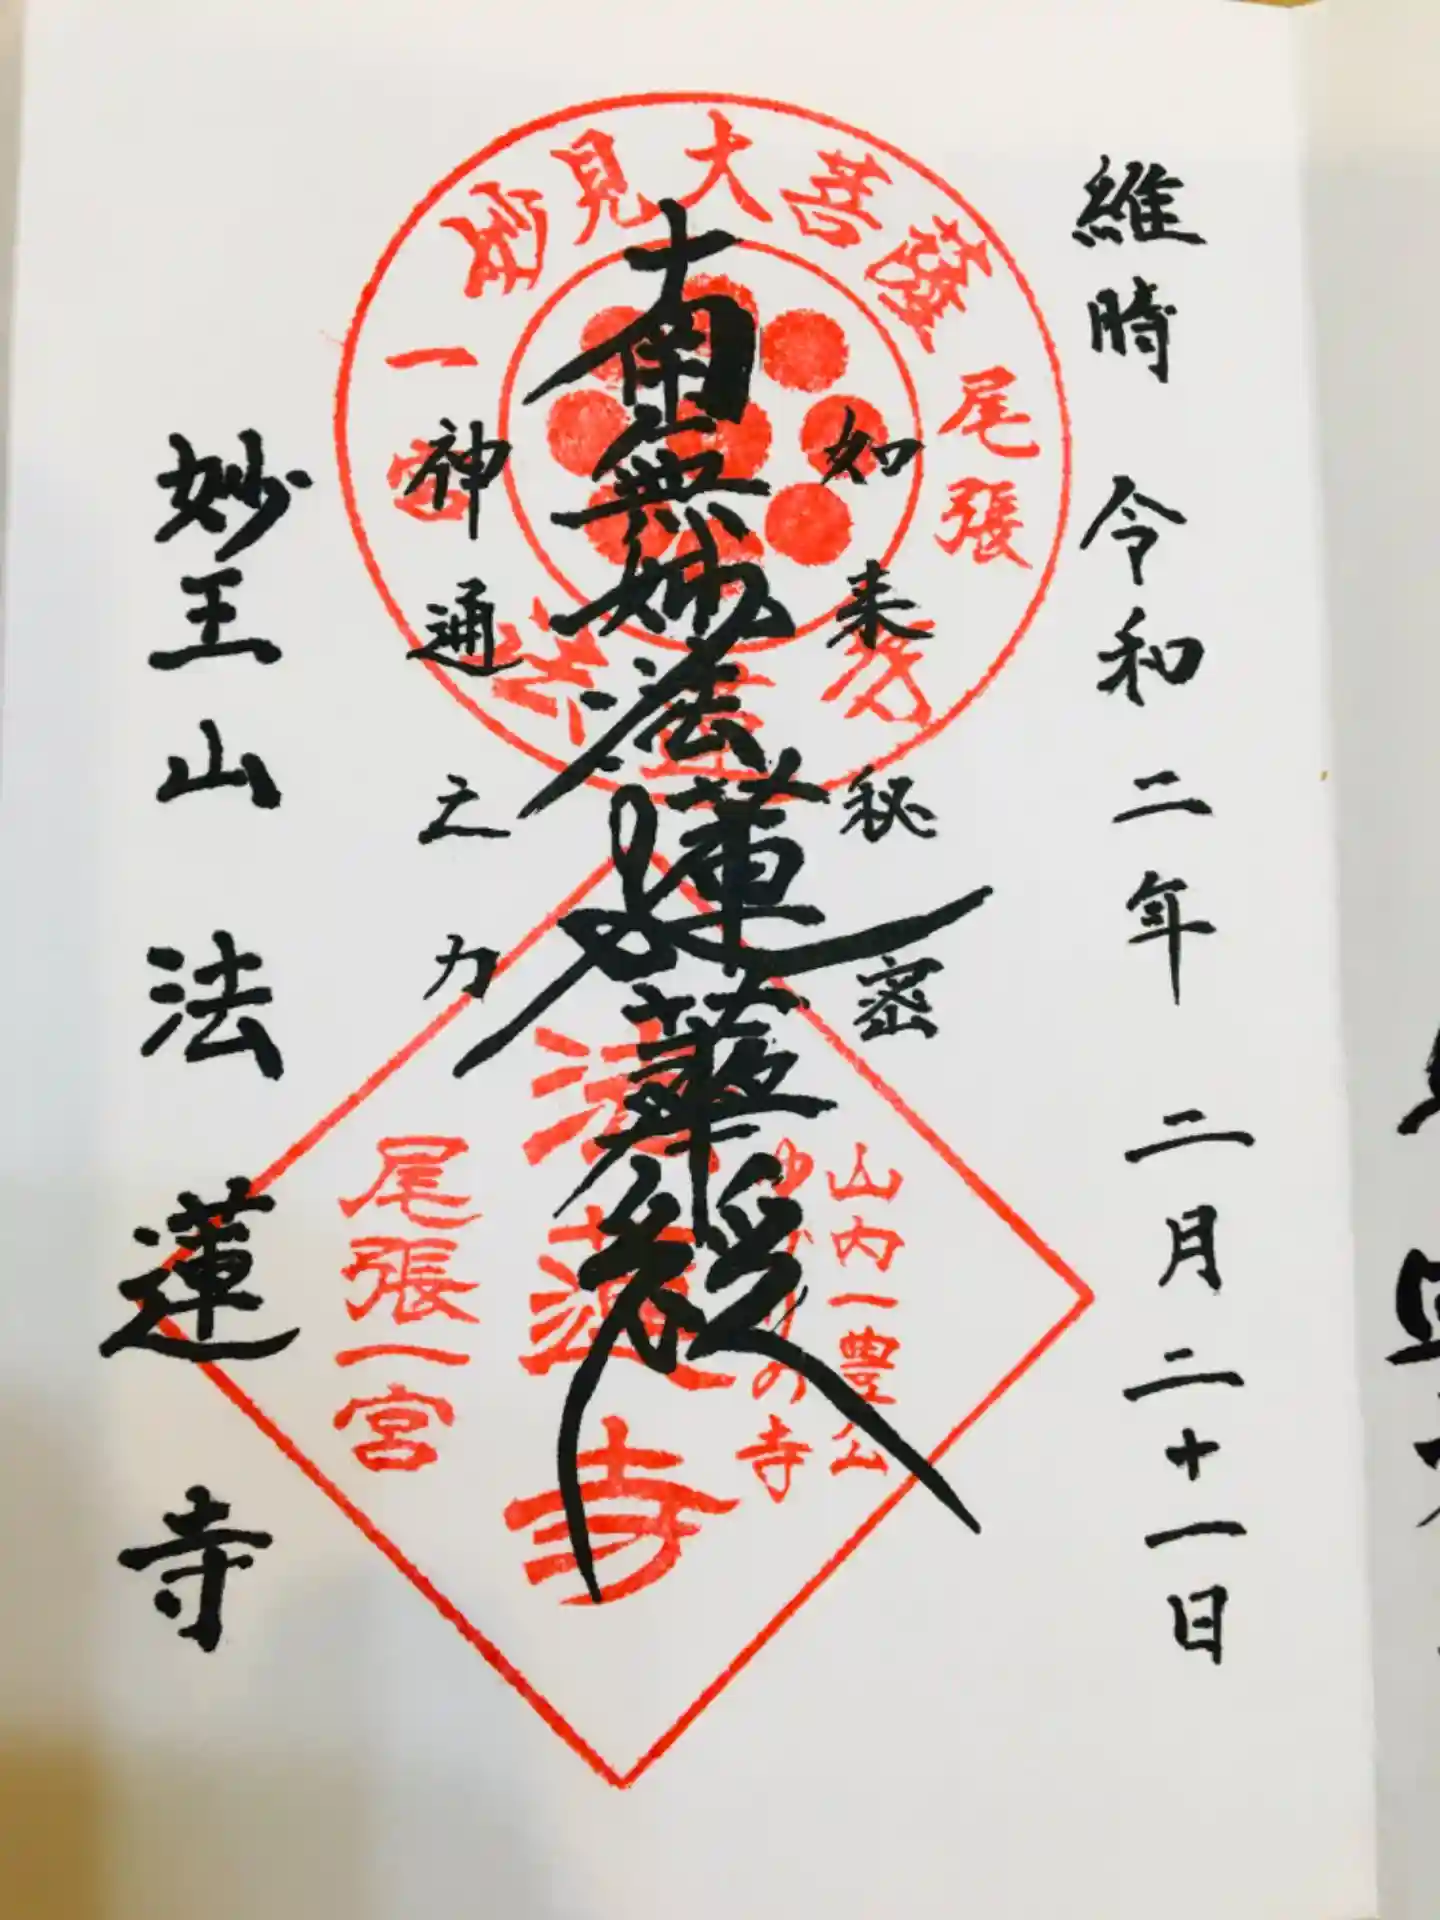 維時 令和二年 二月二十一日
如来秘密
南無妙法蓮華経
神通之力
妙王山法蓮寺
見大菩薩
尾張
一宮
山内一豊公
の寺
法蓮寺
尾張一宮